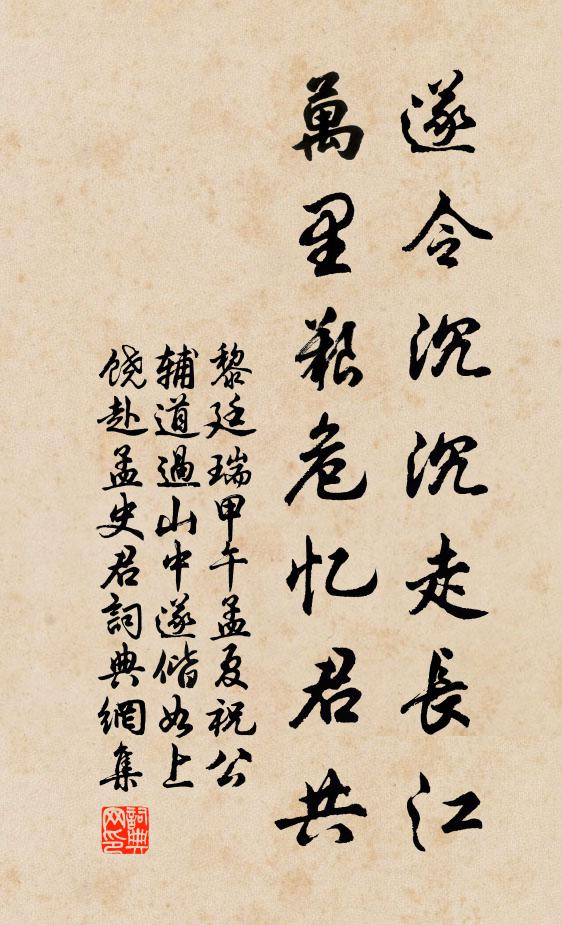 遂令沉沉走長江
萬里艱危忆君共
黎廷瑞甲午孟夏祝公
辅道過山中遂偕如上
饶赴孟史君詞典網集
詞典
网印